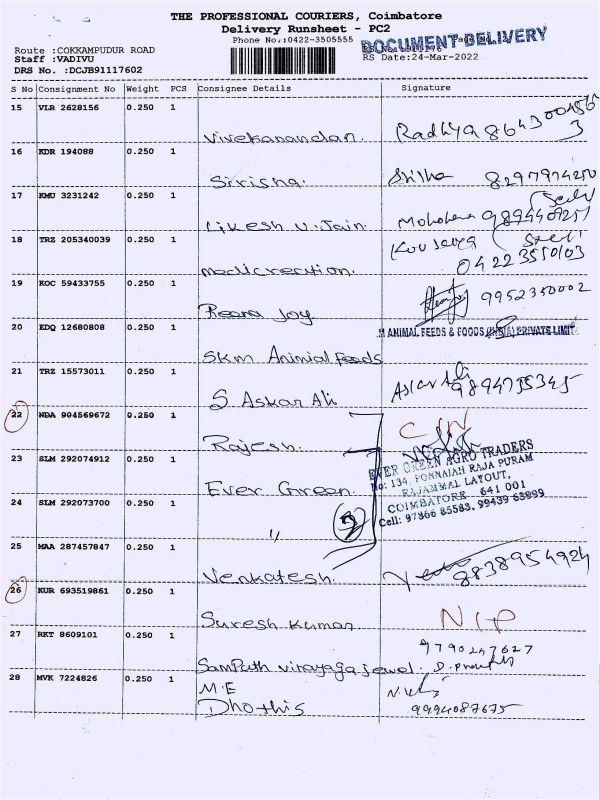 THE PROFESSIONAL COURIERS, Coimbatore
Delivery Runsheet - PC2
Phone No.:0422-3505555
DOCUMENT DELIVERY
Route :COKKAMPUDUR ROAD
Staff :VADIVU
RS Date:24-Mar-2022
DRS No. :DCJB91117602
S No Consignment No Weight PCS Consignee Details Signature
15 VLR 2628156 0.250 1
Vivekanandan. Radhya
3
16 KDR 194088 0.250 1
Sirisha. 8297974250
17 KMU 3231242 0.250 1
Likesh V. Jain. 9894409251
18 TRZ 205340039 0.250 1
medicreation. 04223550103
19 KOC 59433755 0.250 1
Reena Joy 9952350002
20 EDQ 12680808 0.250 1
M ANIMAL FEEDS & FOODS (INDIA) PRIVATE LIMIT
SKM Animial feeds
21 TRZ 15573011 0.250 1
S Askar Ali Askar Ali 9894735345
22 NDA 904569672 0.250 1
Rajesh.
23 SLM 292074912 0.250 1
Ever Green
EVER GREEN AGRO TRADERS
No: 134, PONNAIAH RAJA PURAM
RAJAMMAL LAYOUT,
COIMBATORE 641 001
Cell: 97866 85583, 99439 63999
24 SLM 292073700 0.250 1
"
25 MAA 287457847 0.250 1
Venkatesh. 8838954924
26 KUR 693519861 0.250 1
Suresh Kumar. N/P
27 RKT 8609101 0.250 1
9790247627
Sampath Vinayaga jewel.
28 MVK 7224826 0.250 1
M.E
Dhothis 9994087675